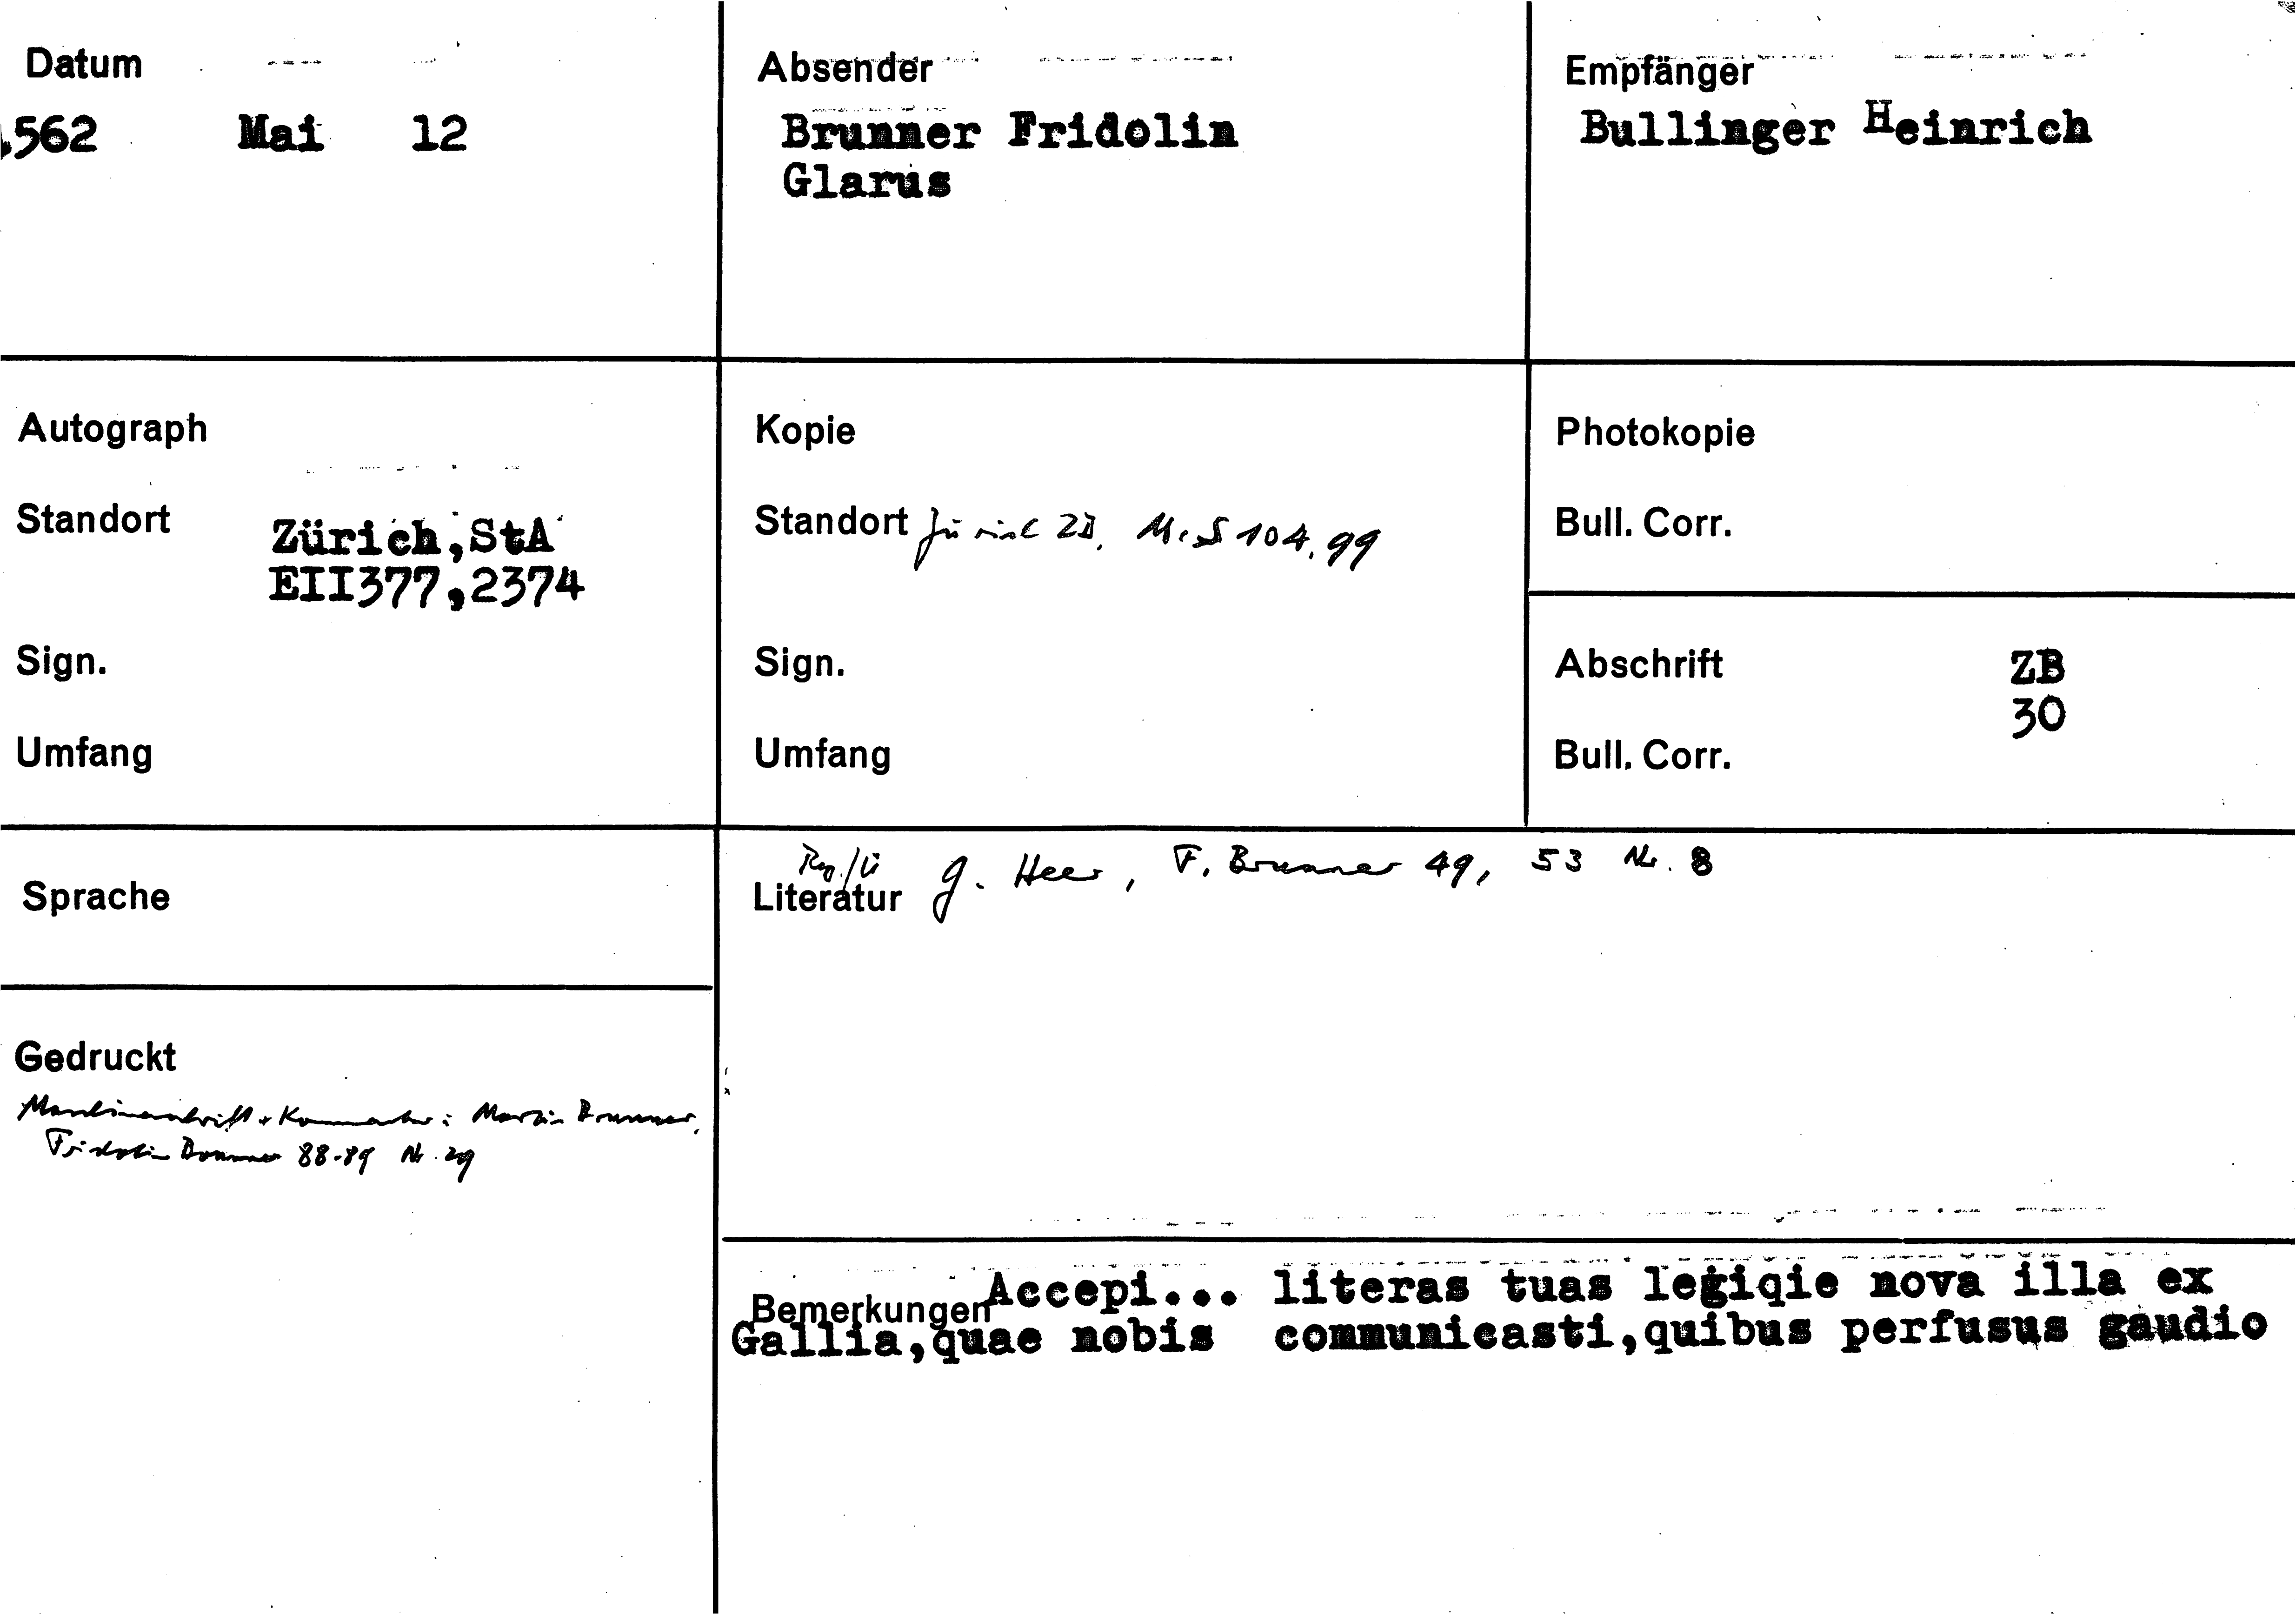 Datum
1562 Mai 12
Absender
Brunner Fridolin
Glarus
Empfänger
Bullinger Heinrich
Autograph
Standort Zürich,StA
EII377,2374
Sign.
Umfang
Kopie
Standort Zürich ZB, Ms S 104, 99
Sign.
Umfang
Photokopie
Bull. Corr.
Abschrift ZB
30
Bull. Corr.
Sprache
Gedruckt
Maschinenschrift + Kommentar: Martin Brunner,
Fridolin Brunner 88-89 Nr. 29
Reg./Ü
Literatur G. Heer, F. Brunner 49, 53 Nr. 8
Bemerkungen Accepi... literas tuas legiqie nova illa ex
Gallia,quae nobis communicasti,quibus perfusus gaudio